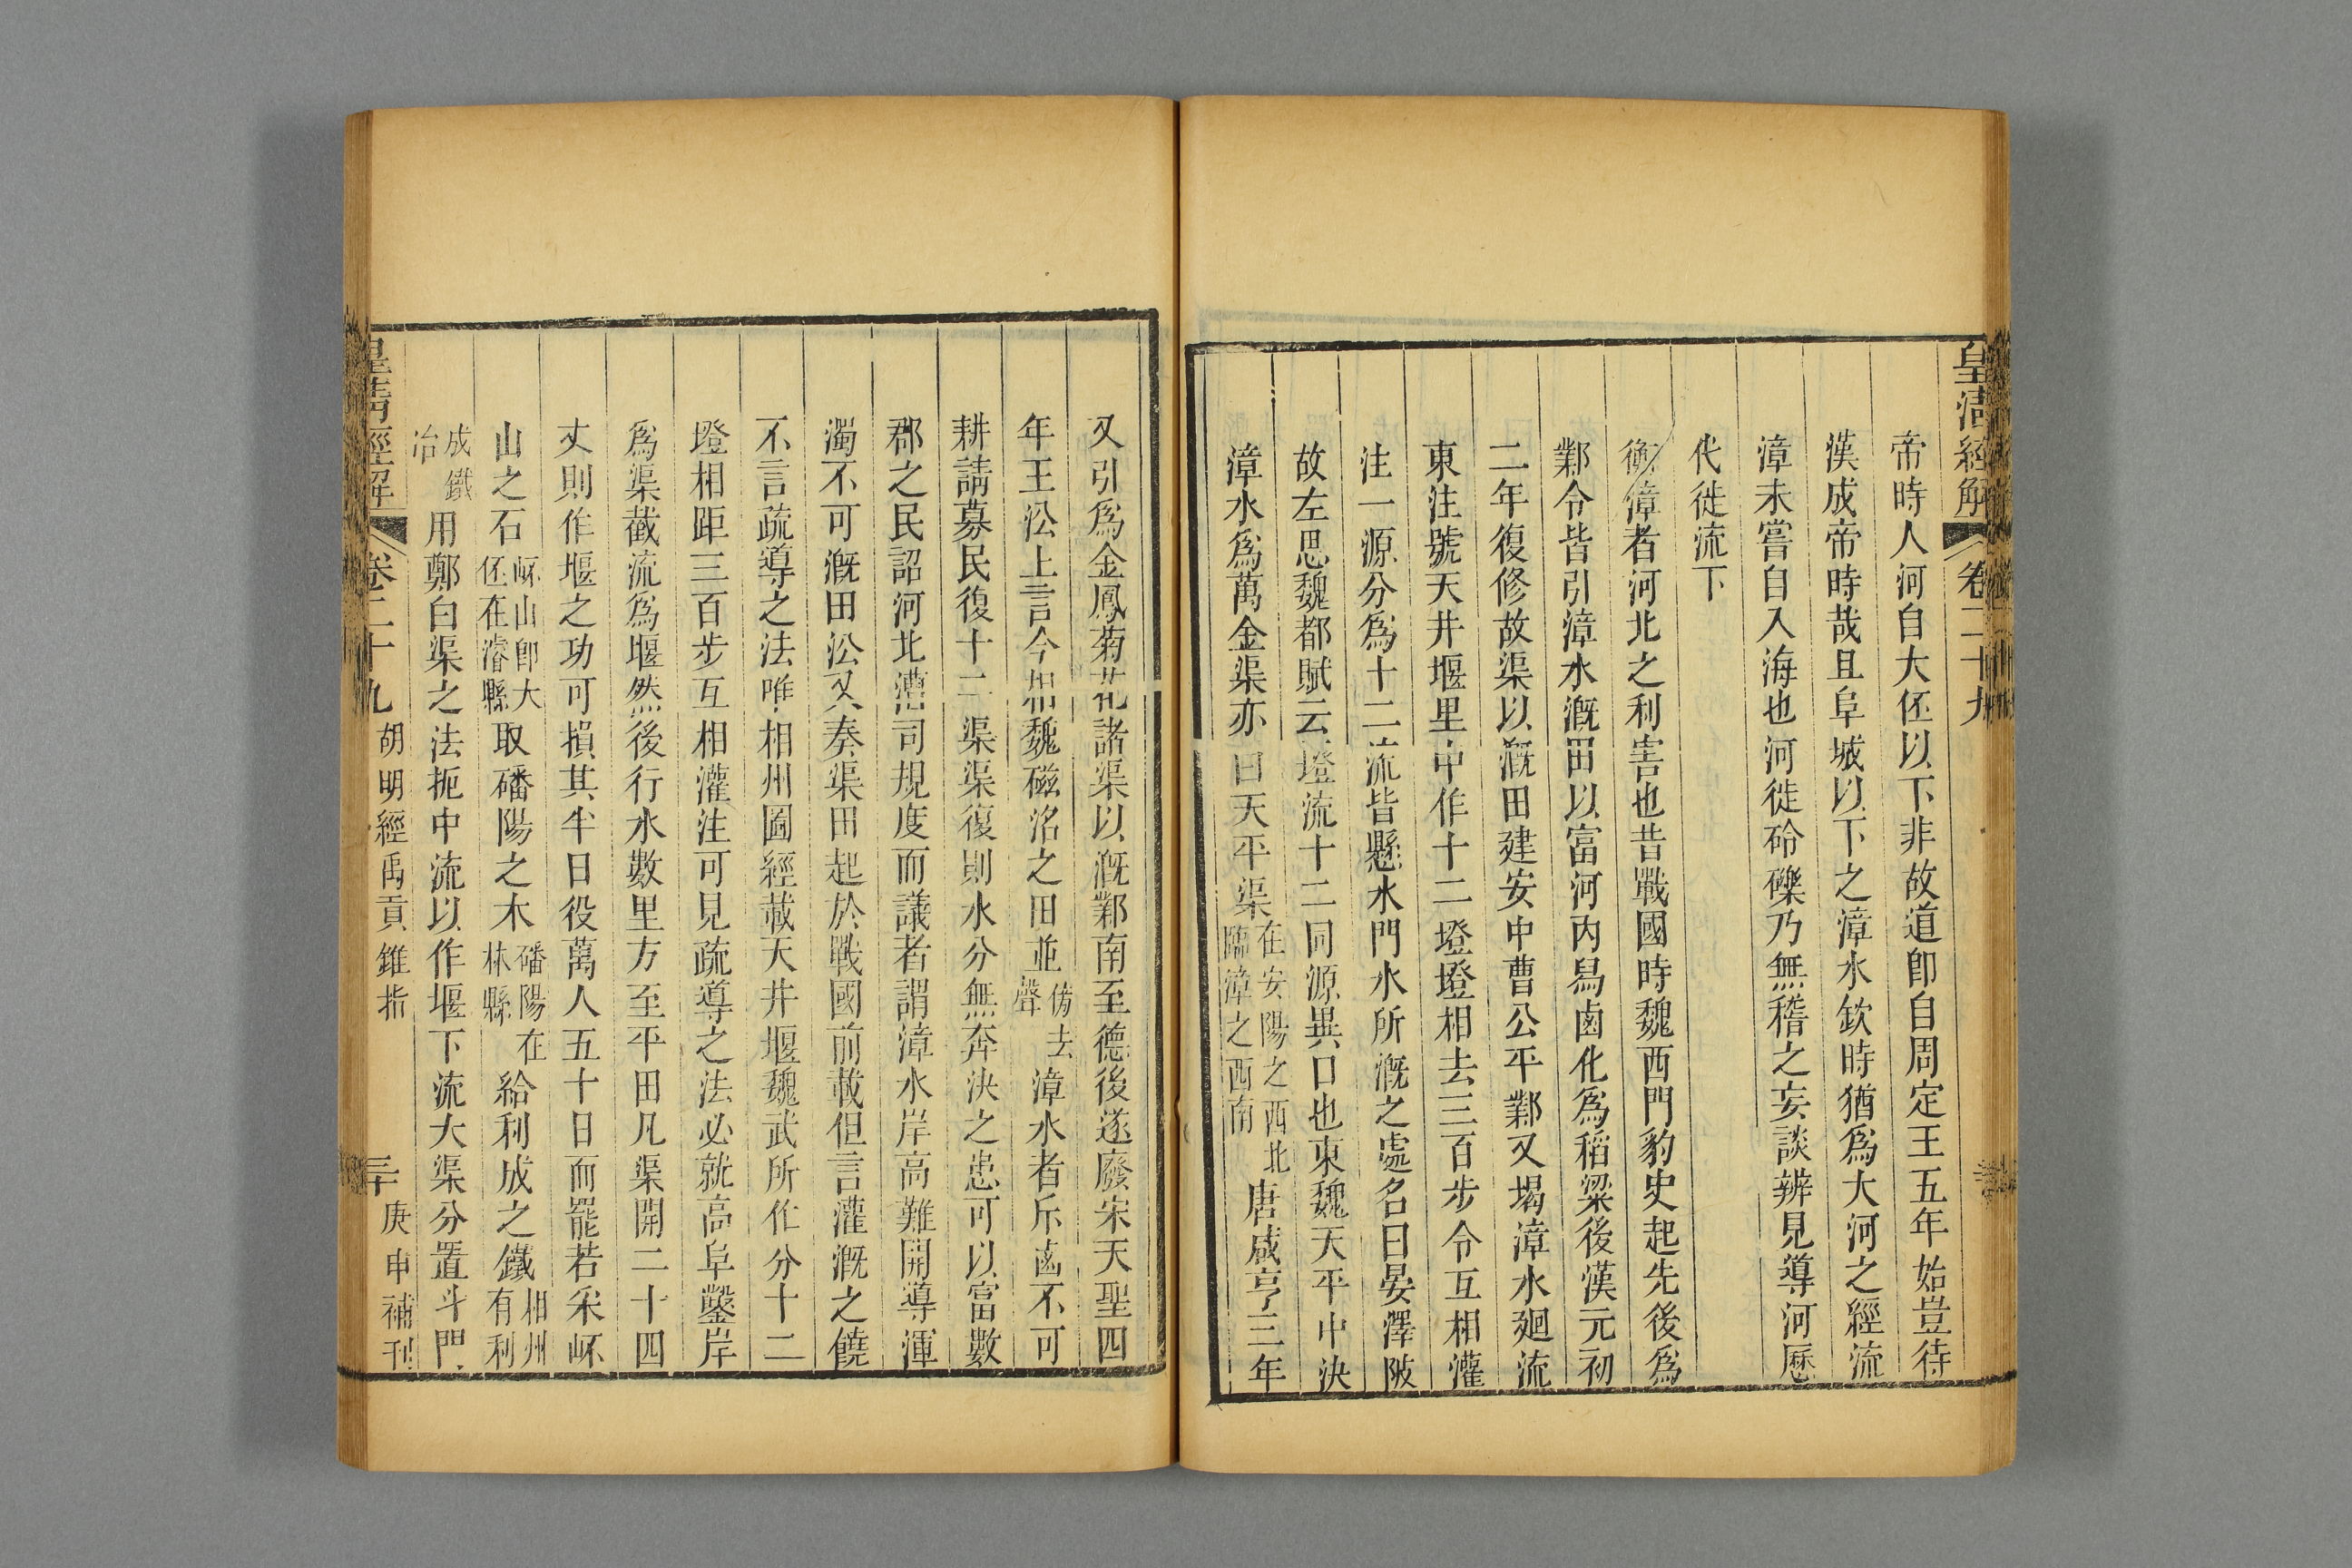 皇清經解 卷二十九
帝時人河自大伾以下非故道卽自周定王五年始豈待
漢成帝時哉且阜城以下之漳水欽時猶爲大河之經流
漳未嘗自入海也河徙砱礫乃無稽之妄談辨見導河歷
代徙流下
衡漳者河北之利害也昔戰國時魏西門豹史起先後爲
鄴令皆引漳水漑田以富河內舄鹵化爲稻粱後漢元初
二年復修故渠以漑田建安中曹公平鄴又堨漳水廻流
東注號天井堰里中作十二墱墱相去三百步令互相灌
注一源分爲十二流皆懸水門水所漑之處名曰晏澤陂
故左思魏都賦云墱流十二同源異口也東魏天平中決
漳水爲萬金渠亦曰天平渠在安陽之西北臨漳之西南唐咸亨三年
又引爲金鳳菊花諸渠以漑鄴南至德後遂廢宋天聖四
年王㳂上言今相魏磁洺之田並傍去聲漳水者斥鹵不可
耕請募民復十二渠渠復則水分無奔決之患可以富數
郡之民詔河北漕司規度而議者謂漳水岸高難開導渾
濁不可漑田㳂又奏渠田起於戰國前載但言灌漑之饒
不言疏導之法唯相州圖經載天井堰魏武所作分十二
墱相距三百步互相灌注可見疏導之法必就高阜鑿岸
爲渠截流爲堰然後行水數里方至平田凡渠開二十四
丈則作堰之功可損其半日役萬人五十日而罷若采㟁
山之石㟁山卽大伾在濬縣取磻陽之木磻陽在林縣給利成之鐵相州有利
成鐵冶用鄭白渠之法扼中流以作堰下流大渠分置斗門
皇清經解 卷二十九 胡明經禹貢錐指 三十 庚申補刊